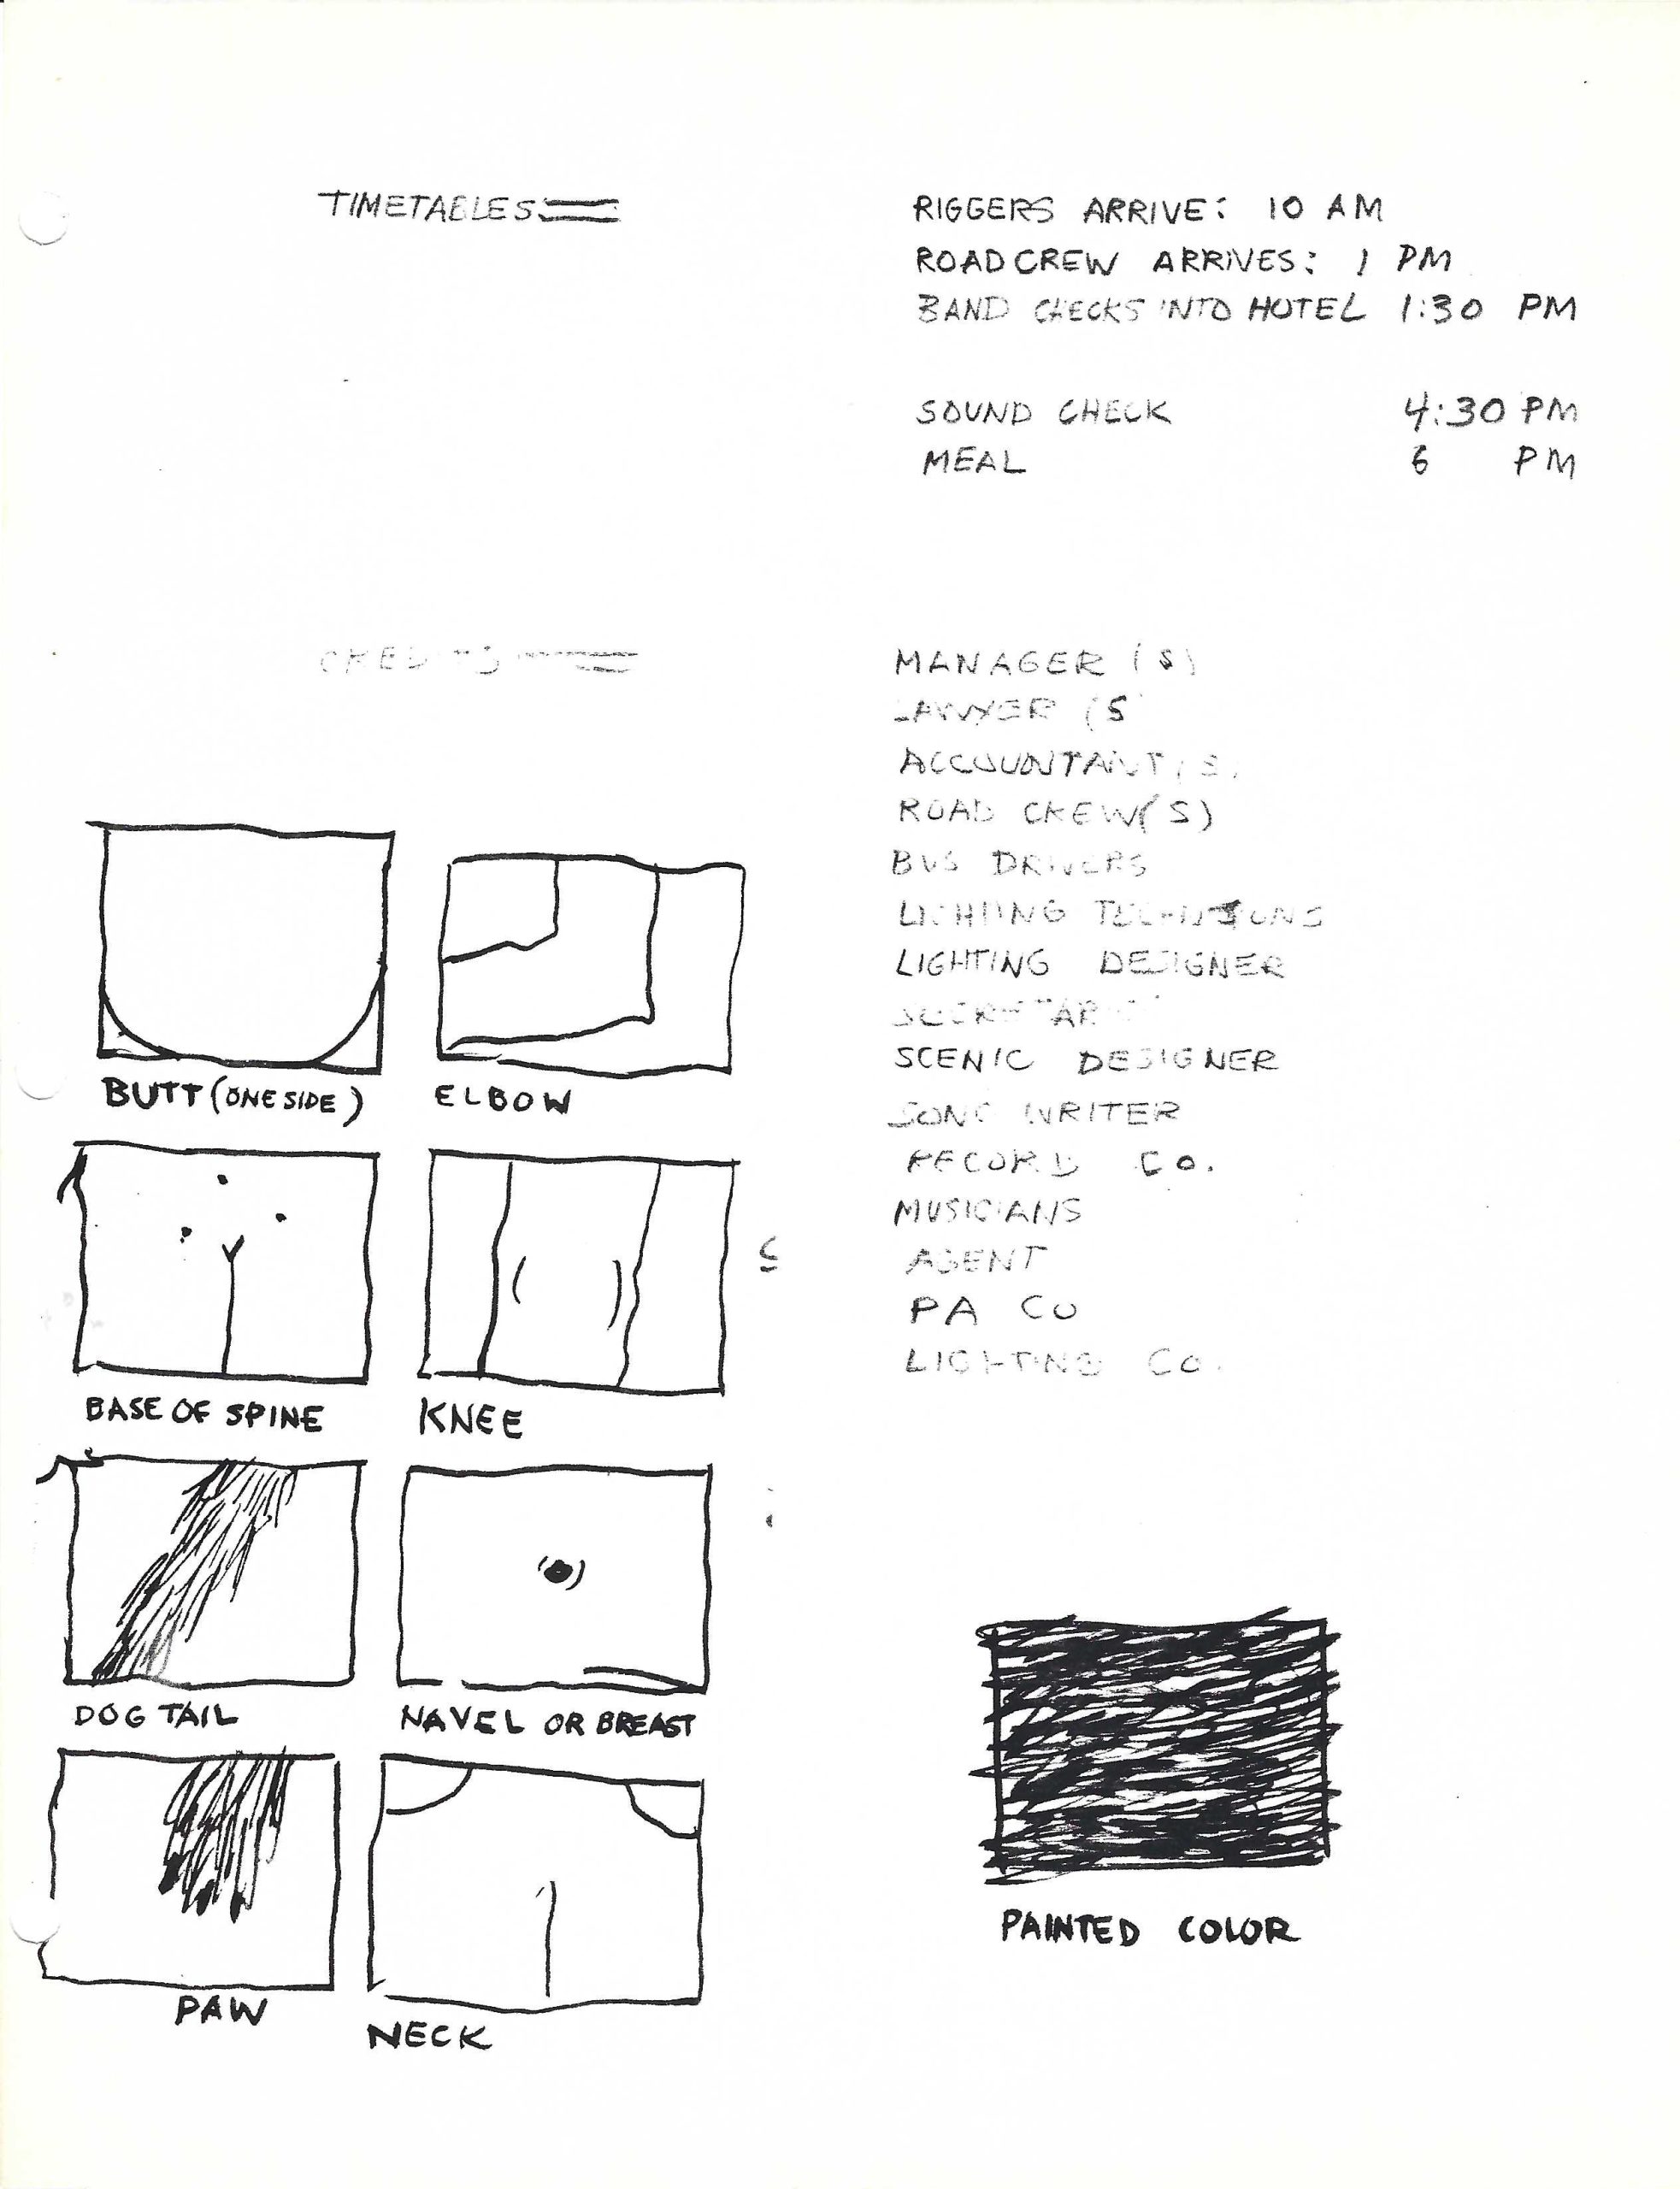 TIMETABLES
RIGGERS ARRIVE: 10 AM
ROADCREW ARRIVES: 1 PM
BAND CHECKS INTO HOTEL 1:30 PM
SOUND CHECK 4:30 PM
MEAL 6 PM
CREDITS
MANAGER (S)
LAWYER (S
ACCOUNTANT(S)
ROAD CREW(S)
BUS DRIVERS
LIGHTING
LIGHTING DESIGNER
SCENIC DESIGNER
SONG WRITER
RECORD CO.
MUSICIANS
AGENT
PA CO
LIGHTING CO.
BUTT (ONE SIDE)
ELBOW
BASE OF SPINE
KNEE
DOG TAIL
NAVEL OR BREAST
PAW
NECK
PAINTED COLOR